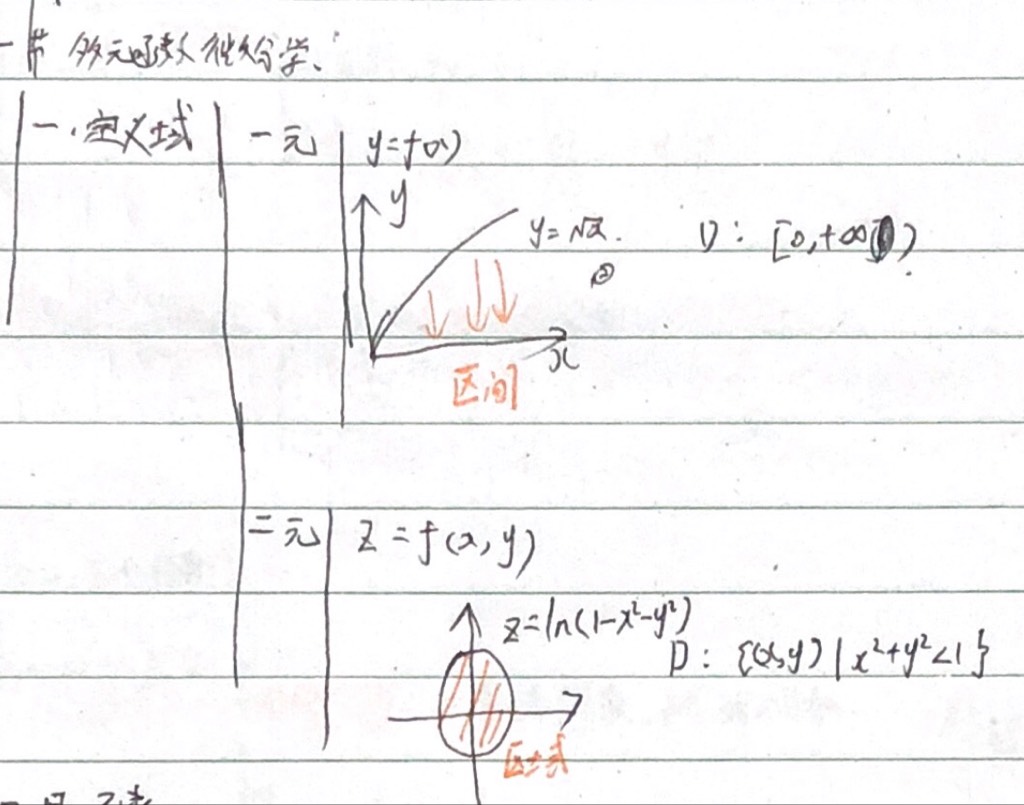 一节 多元函数微分学:
一.定义域
一元
y=f(x)
y
y=√x.
D: [0,+∞)
x
区间
二元
z=f(x,y)
z=ln(1-x²-y²)
D: {(x,y)|x²+y²<1}
区域